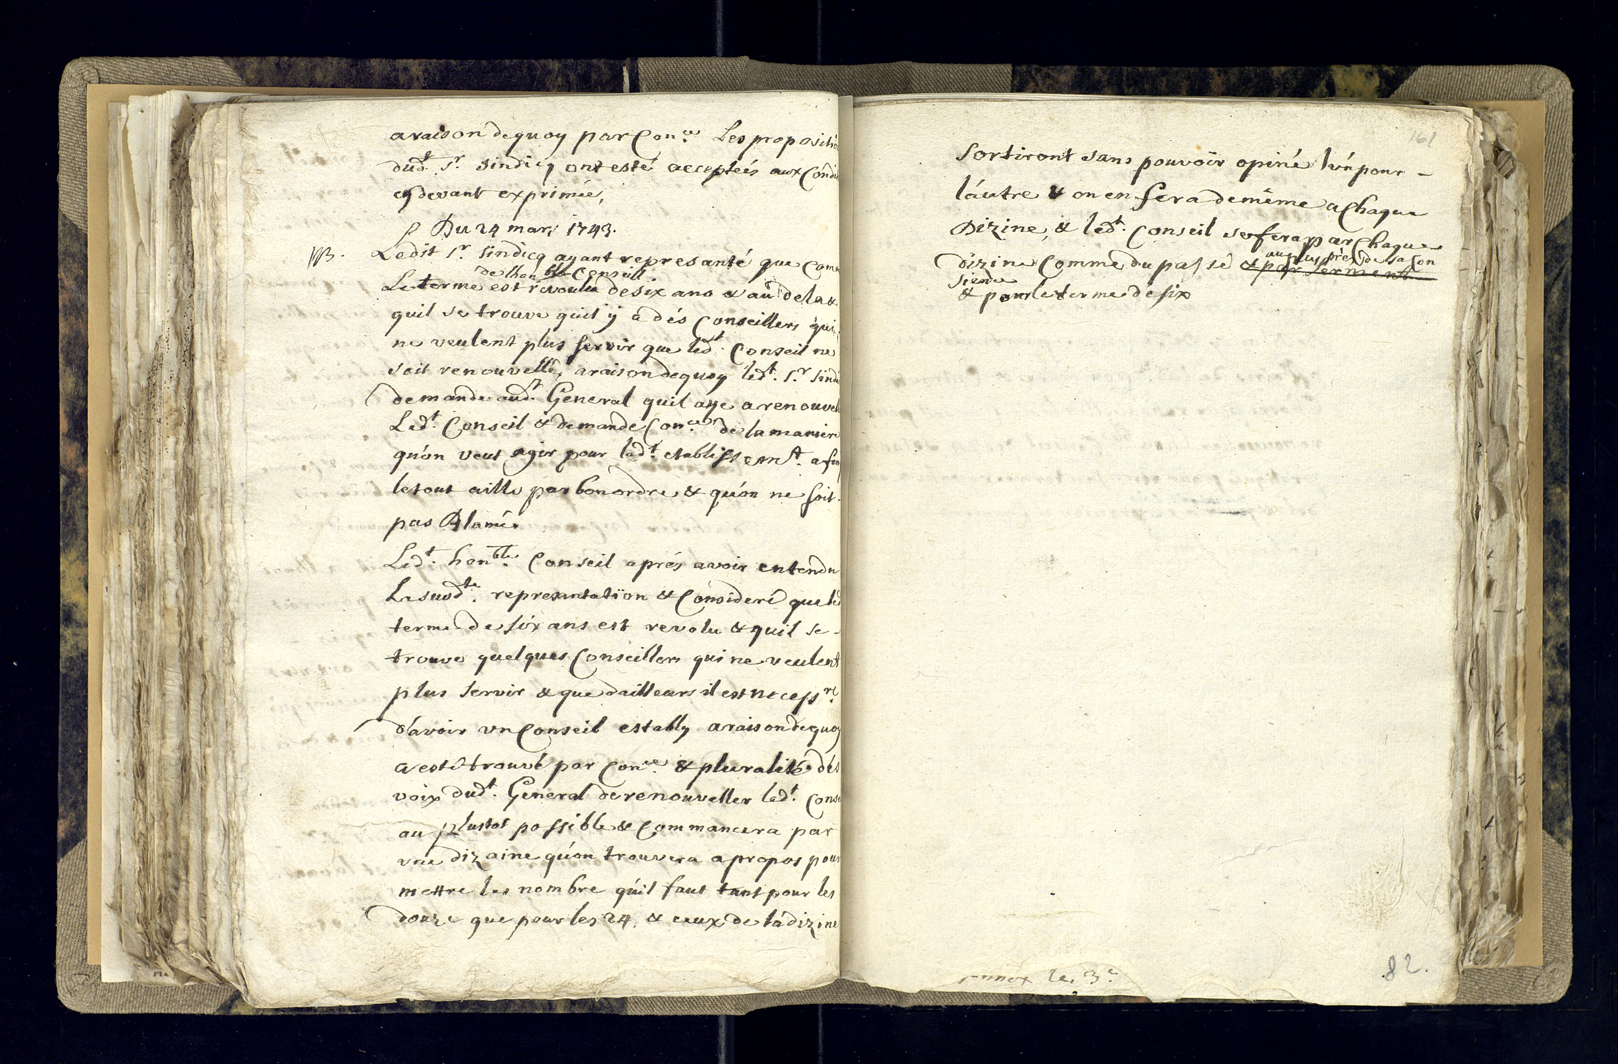 araison dequoy par Con.ce Les propositio
dud.t S.r Sindicq ont esté acceptées aux Condi
cy devant exprimée,
Du 24 mars 1743.
NB. Ledit S.r Sindicq ayant represanté que Come
de lhon.ble Conseill
Le terme est revoulu de six ans & au dela &
quil se trouve quil y a dés Conseillers qui
ne veulent plus servir que led.t Conseil ne
soit renouvellé, araison dequoy led.t S.r Sindi
demande aud.t General quil aye a renouvel
Led.t Conseil & demande Con.ce de la maniere
qu'on veut agir pour led.t etablissem.t afin
le tout aille par bon ordre & qu'on ne soit
pas Blamé.
Led.t hon.ble Conseil aprés avoir entendu
La susd.te representation & Consideré que led
terme de six ans est revolu & quil se
trouve quelques Conseillers qui ne veulent
plus servir & que dailleurs il est necess.re
d'avoir un Conseil establly araison dequoy
a esté trouvé par Con.ce & pluralité dés
voix dud.t General de renouveller led.t Conse
au plustot possible & Commancera par
une dizaine qu'on trouvera apropos pour
mettre les nombre qu'il faut tant pour les
douze que pour les 24. & ceux de la dizine
161
Sortiront sans pouvoir opiné l'un pour
láutre & on en fera de même a Chaque
Dizine, & led.t Conseil se fera par Chaque
au plus près de sa Con
dizine Comme du passé & par serment
sience
& pour le terme de six
82.